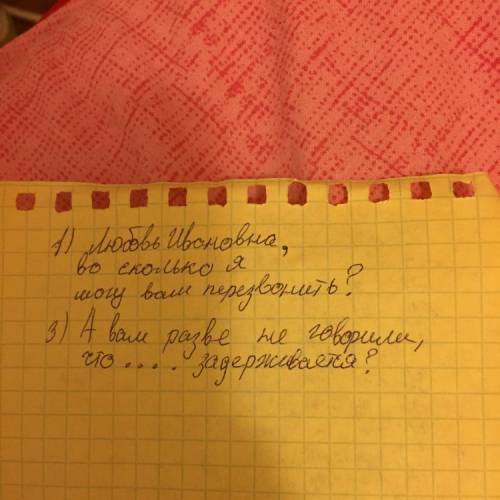 1) Любовь Ивановна,
во сколько я
могу вам перезвонить?
3) А вам разве не говорили,
что .... задерживается?